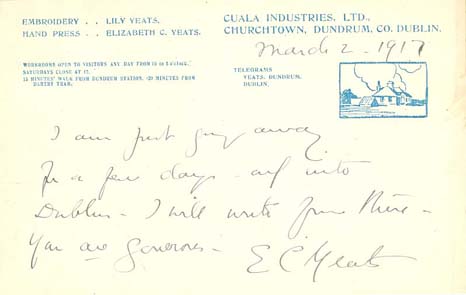 EMBROIDERY . . LILY YEATS.
HAND PRESS . . ELIZABETH C. YEATS.
CUALA INDUSTRIES, LTD.,
CHURCHTOWN, DUNDRUM, CO. DUBLIN.
March 2 - 1917
WORKROOMS OPEN TO VISITORS ANY DAY FROM 10 to
SATURDAYS CLOSE AT 17.
15 MINUTES' WALK FROM DUNDRUM STATION, 20 MINUTES FROM
TRAM.
TELEGRAMS
YEATS, DUNDRUM,
DUBLIN.
I am just going away
for a few days - and into
Dublin - I will write from there -
You are generous -
E C Yeats